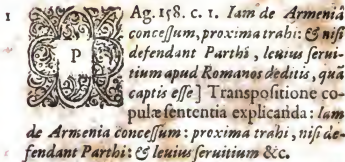 1 PAg. 158. c. 1. Iam de Armeniâ
concessum, proxima trahi: & nisi
defendant Parthi, leuius serui-
tium apud Romanos deditis, quã
captis esse] Transpositione co-
pulæ sententia explicanda: Iam
de Armenia concessum: proxima trahi, nisi de-
fendant Parthi: & leuius seruitium &c.